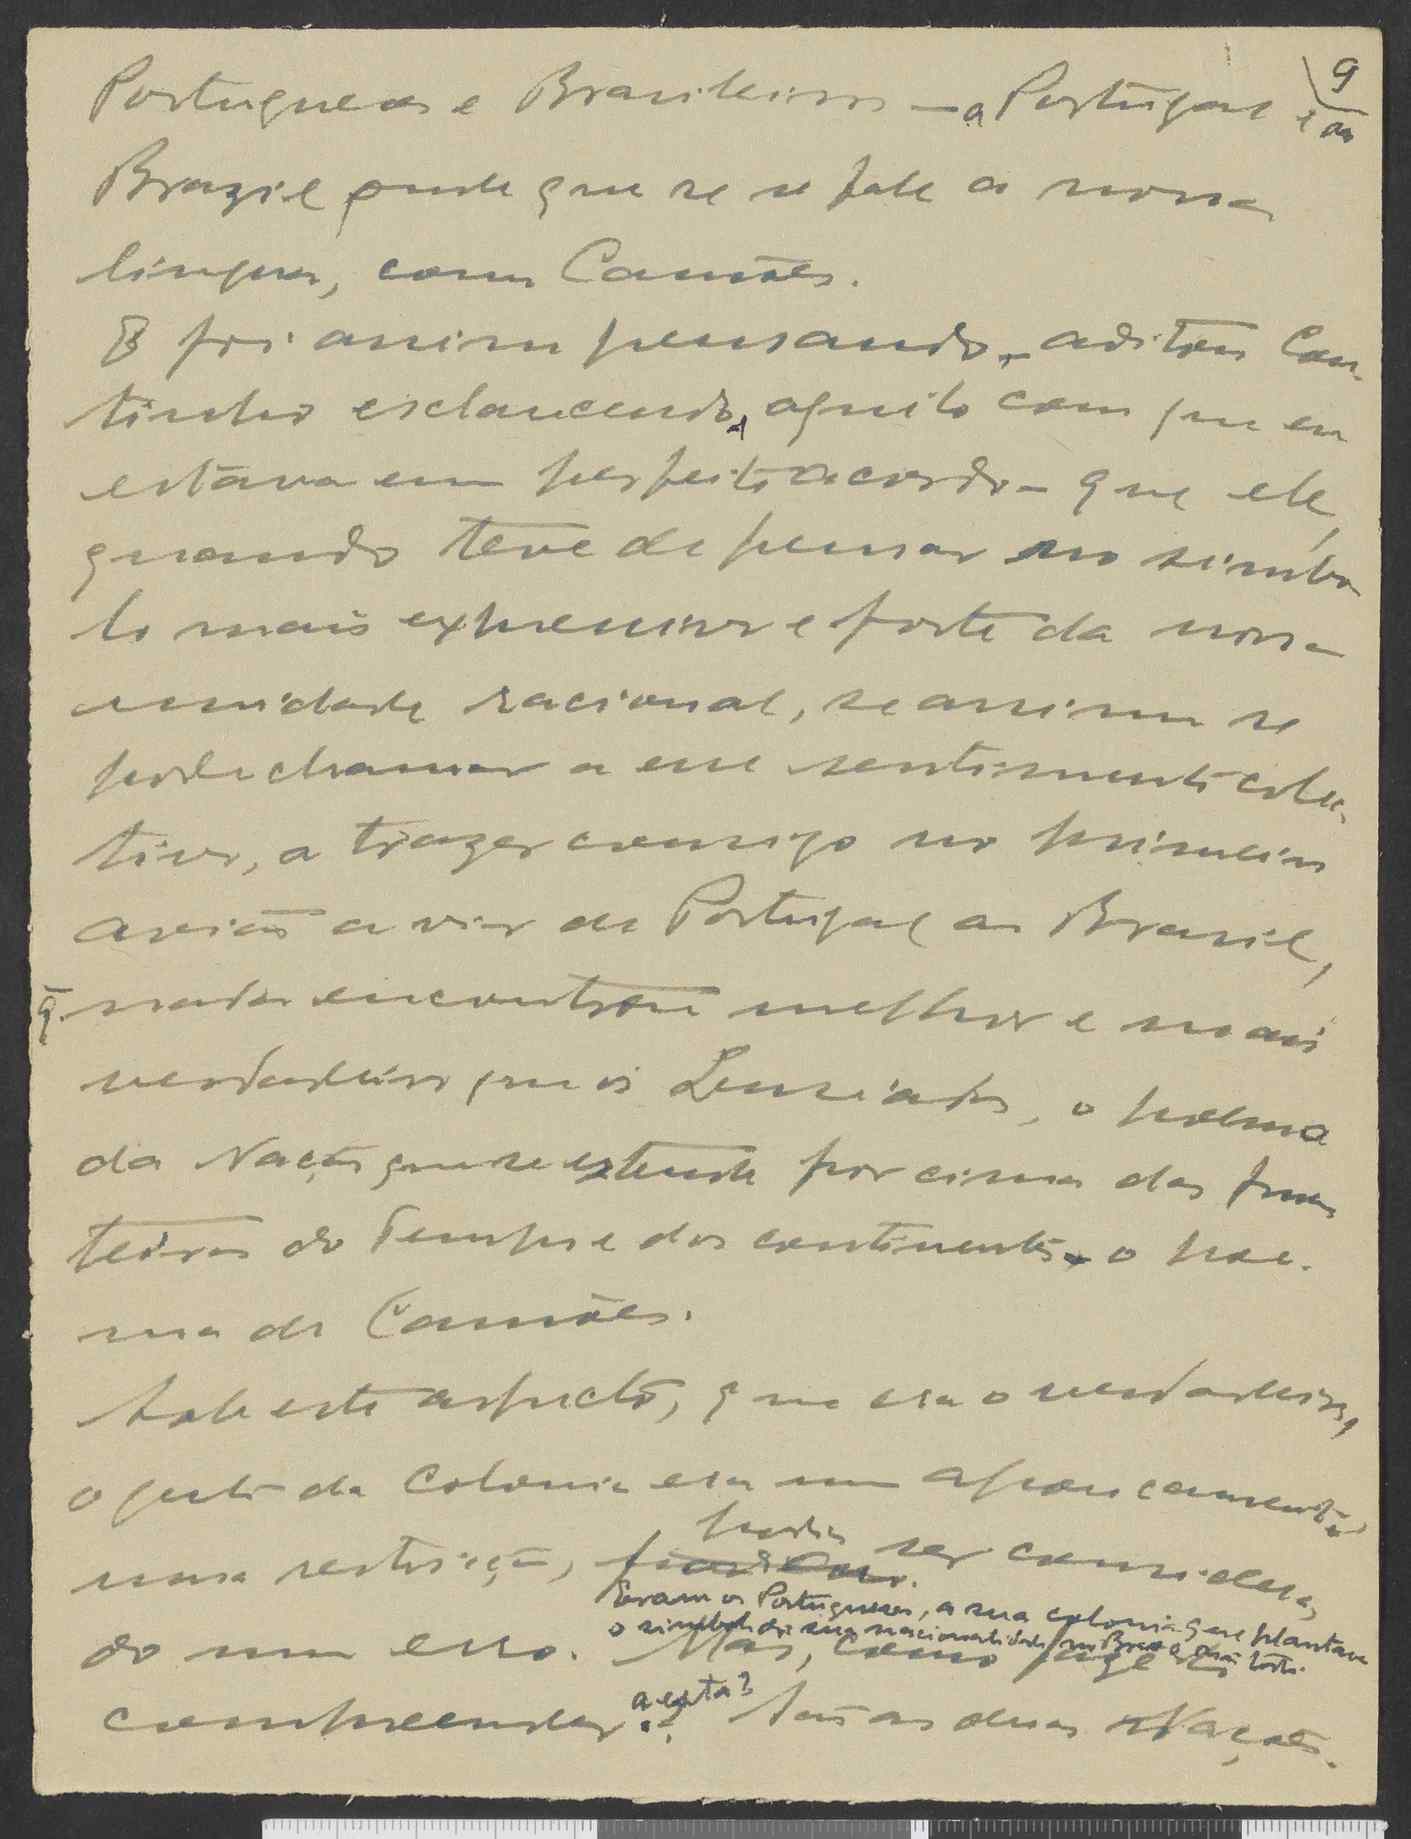 9
Portugueses e Brasileiros — a Portugal e ao
Brazil onde que se se fale a nossa
lingua, como Camões.
E foi assim pensando, — aditou Cou-
tinho esclarecendo, aquilo com que eu
estava em perfeito acordo — que ele,
quando teve de pensar no simbo-
lo mais expressivo e forte da nossa
unidade racional, se assim se
pode chamar a esse sentimento colec-
tivo, a trazer comsigo no primeiro
avião a vir de Portugal ao Brasil,
q. nada encontrou melhor e mais
verdadeiro que os Lusiadas, o poema
da Nação que se estende por cima das fron
teiras do Tempo e dos continentes — o poe-
ma de Camões.
Sob este aspecto, que era o verdadeiro,
o gesto da Colonia era um apoucamento,
uma restrição, podia ser considera-
do um erro. Mas, como
Eram os Portugueses, a sua colonia que plantava
o simbolo da sua nacionalidade no Brasil
compreender a exta? São as duas Nações.